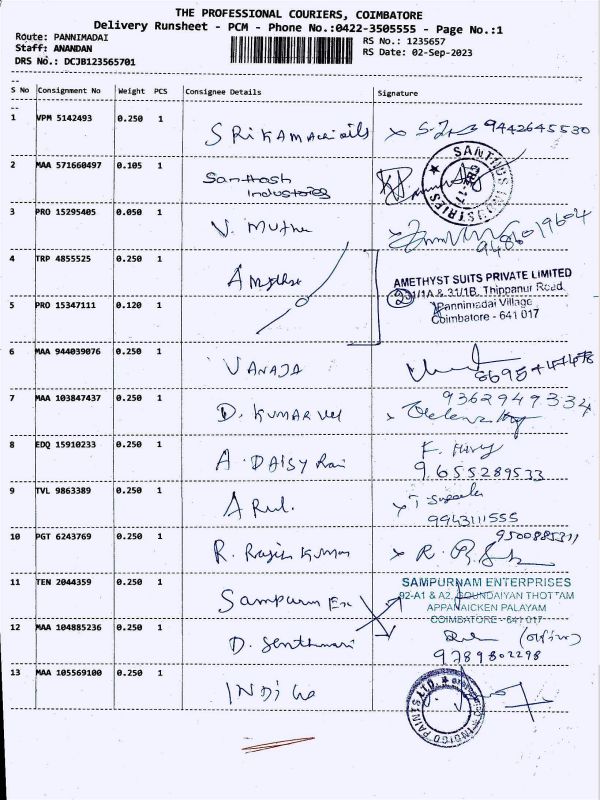 THE PROFESSIONAL COURIERS, COIMBATORE
Delivery Runsheet - PCM - Phone No.:0422-3505555 - Page No.:1
Route: PANNIMADAI
RS No.: 1235657
Staff: ANANDAN
RS Date: 02-Sep-2023
DRS No.: DCJB123565701
S No Consignment No Weight PCS Consignee Details Signature
1 VPM 5142493 0.250 1 9442645530
2 MAA 571660497 0.105 1 Santhosh Industries
SANTHOSH INDUSTRIES
3 PRO 15295405 0.050 1 V. Muthu
9486019604
4 TRP 4855525 0.250 1
AMETHYST SUITS PRIVATE LIMITED
231/1A & 31/1B, Thippanur Road,
Pannimadai Village
Coimbatore - 641 017
5 PRO 15347111 0.120 1
6 MAA 944039076 0.250 1 VANAJA
7 MAA 103847437 0.250 1 D. KUMARVEL 9362949334
8 EDQ 15910233 0.250 1 A. DAISY Rani
9655289533
9 TVL 9863389 0.250 1 ARUL.
9943111555
10 PGT 6243769 0.250 1 R. Rajesh Kumar 9500885311
11 TEN 2044359 0.250 1 Sampurnam
SAMPURNAM ENTERPRISES
92-A1 & A2, GOUNDAIYAN THOTTAM
APPANAICKEN PALAYAM
COIMBATORE - 641 017
12 MAA 104885236 0.250 1 D.
9789802298
13 MAA 105569100 0.250 1 INDIGO
INDIGO PAINTS LTD.